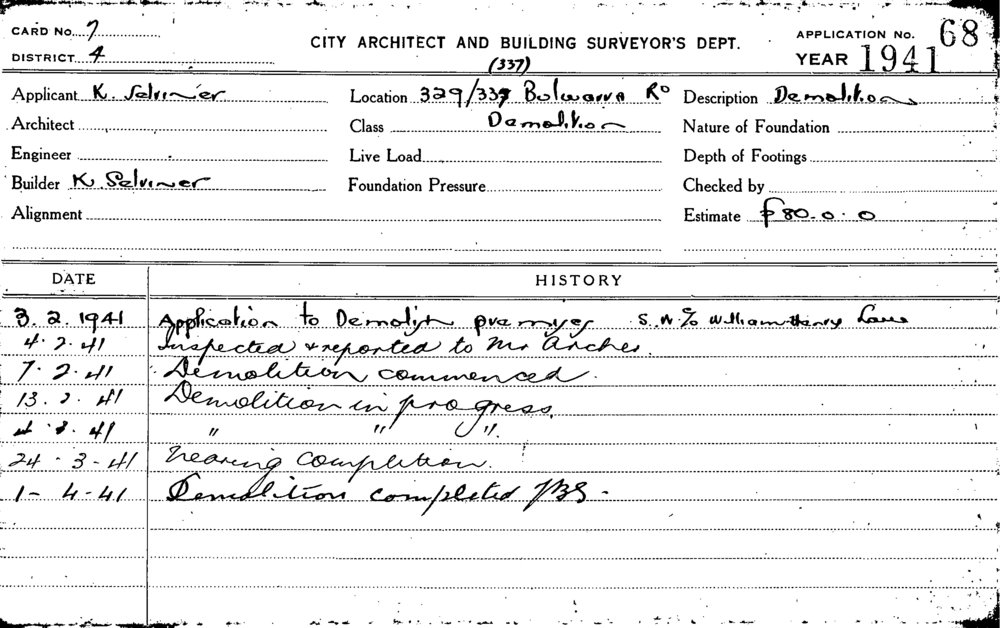 CARD No. 7
DISTRICT 4
CITY ARCHITECT AND BUILDING SURVEYOR'S DEPT.
APPLICATION No. 68
YEAR 1941
(337)
Applicant K. Selviner Location 329/339 Bulwarra Rd Description Demolition
Architect Class Demolition Nature of Foundation
Engineer Live Load Depth of Footings
Builder K Selviner Foundation Pressure Checked by
Alignment Estimate £80.0.0
DATE HISTORY
3.2.1941 Application to Demolish premises S.W/c William Henry Lane
4.2.41 Inspected & reported to Mr Archer.
7.2.41 Demolition commenced.
13.2.41 Demolition in progress.
4.3.41 " " ".
24-3-41 Nearing completion.
1-4-41 Demolition completed